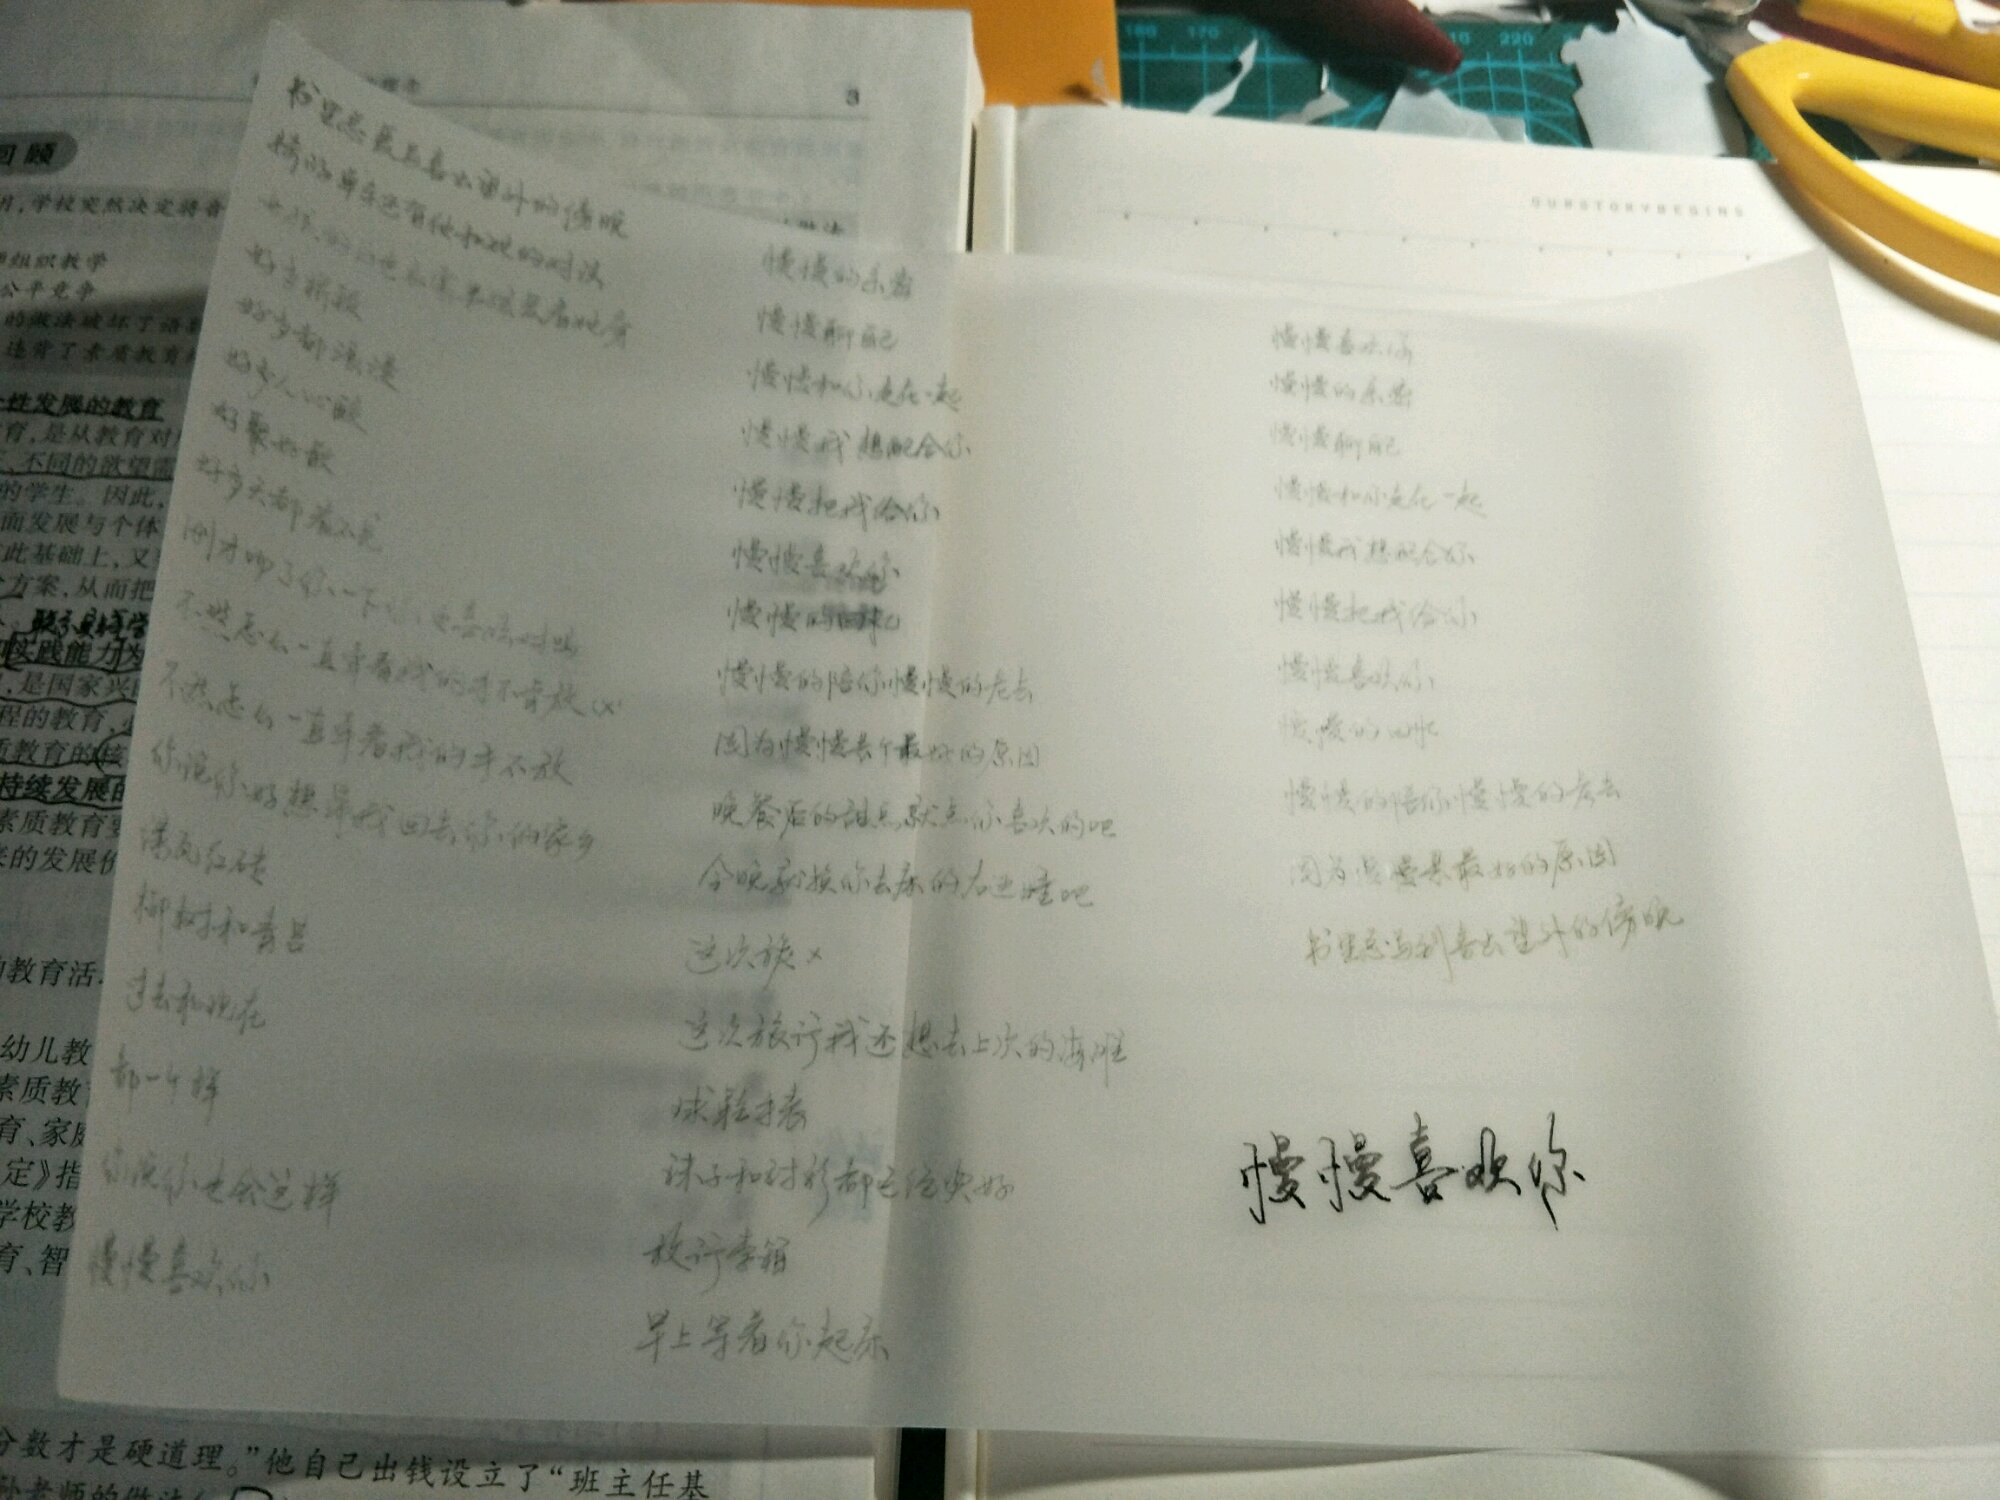 3
回顾
明,学校突然决定将音
师组织教学
公平竞争
的做法破坏了语
违背了素质教育
性发展的教育
育,是从教育对
不同的欲望需
的学生。因此,
面发展与个体
此基础上,又
方案,从而把
实践能力为
,是国家兴
程的教育,
质教育的核
持续发展的
素质教育要
来的发展价
的教育活
幼儿教
素质教
育、家庭
定》指
学校教
育、智
分数才是硬道理。”他自己出钱设立了“班主任基
孙老师的做法(
书里总爱写喜出望外的傍晚
骑的单车还有他和她的对话
好多桥段
好多都浪漫
好多人心酸
好聚好散
好多天都看不完
刚才吻了你一下你也喜欢对吗
不然怎么一直牵着我的手不
不然怎么一直牵着我的手不放
你说你好想带我回去你的家乡
绿瓦红砖
柳树和青苔
过去和现在
都一个样
你说你也会这样
慢慢喜欢你
慢慢的亲密
慢慢聊自己
慢慢和你走在一起
慢慢我想配合你
慢慢把我给你
慢慢喜欢你
慢慢的回忆
慢慢的陪你慢慢的老去
因为慢慢是个最好的原因
晚餐后的甜点就点你喜欢的吧
今晚就换你去床的右边睡吧
这次旅
这次旅行我还想去上次的海滩
球鞋手表
袜子和衬衫都已经烫好
放行李箱
早上等着你起床
OURSTORYBEGINS
慢慢喜欢你
慢慢的亲密
慢慢聊自己
慢慢和你走在一起
慢慢我想配合你
慢慢把我给你
慢慢喜欢你
慢慢的回忆
慢慢的陪你慢慢的老去
因为慢慢是最好的原因
书里总写到喜出望外的傍晚
慢慢喜欢你